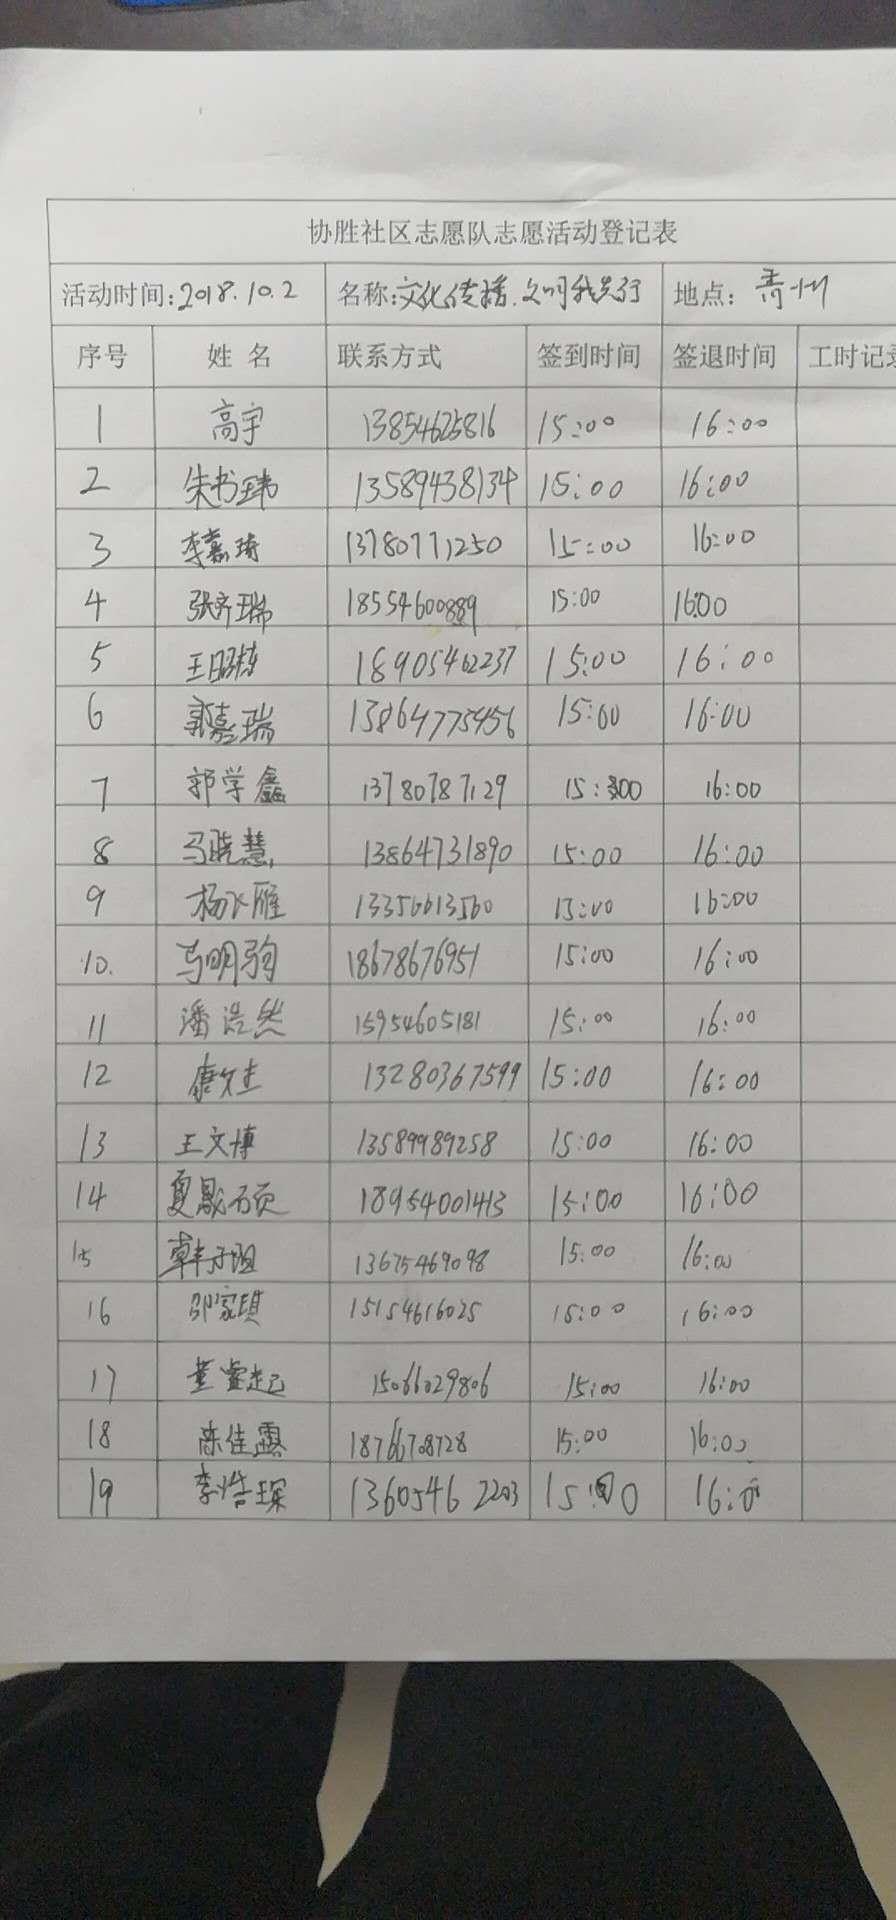 协胜社区志愿队志愿活动登记表
活动时间:2018.10.2 名称:文化传播.文明我先行 地点:青州
序号 姓名 联系方式 签到时间 签退时间 工时记录
1 高宇 13854625816 15:00 16:00
2 朱书玮 13589438134 15:00 16:00
3 李嘉琦 13780771250 15:00 16:00
4 张齐瑞 18554600889 15:00 16:00
5 王昭栋 18905462237 15:00 16:00
6 郭嘉瑞 13864775456 15:00 16:00
7 郭学鑫 13780787129 15:00 16:00
8 马晓慧 13864731890 15:00 16:00
9 杨飞雁 13356613560 15:00 16:00
10. 马明驹 18678676951 15:00 16:00
11 潘浩然 15954605181 15:00 16:00
12 康文杰 13280367599 15:00 16:00
13 王文博 13589989258 15:00 16:00
14 夏晟硕 18954001413 15:00 16:00
15 韩子 13675469098 15:00 16:00
16 邵家琪 15154616025 15:00 16:00
17 董睿起 15066029806 15:00 16:00
18 陈佳露 18766708728 15:00 16:00
19 李浩琛 13605462203 15:00 16:0